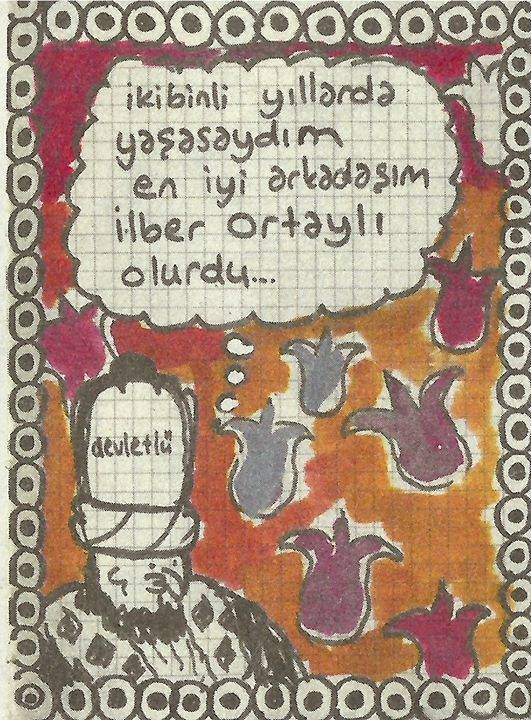 ikibinli yıllarda
yaşasaydım
en iyi arkadaşım
ilber ortaylı
olurdu...
devletlü